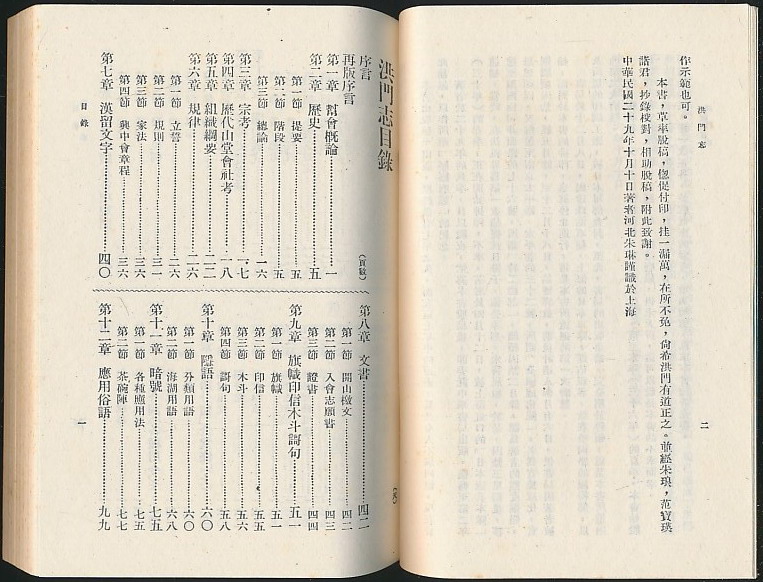 洪門志
作示範也可。
本書，草率脫稿，偬促付印，挂一漏萬，在所不免，尙希洪門有道正之。並經朱琅，范寶瑛
諸君，抄錄校對，相助脫稿，附此致謝。
中華民國二十九年十月十日著者河北朱琳謹識於上海
二
洪門志目錄
序言
再版序言
（頁數）
第一章 幫會概論 一
第二章 歷史 五
第一節 提要 五
第二節 階段 五
第三節 總論 一六
第三章 宗考 一七
第四章 歷代山堂會社考 一八
第五章 組織綱要 二二
第六章 規律 二六
第一節 立誓 二六
第二節 規則 三一
第三節 家法 三六
第四節 興中會章程 三六
第七章 漢留文字 四〇
目錄
第八章 文書 四二
第一節 開山檄文 四二
第二節 入會志願書 四三
第三節 證書 四四
第九章 旗幟印信木斗謌句 五一
第一節 旗幟 五一
第二節 印信 五五
第三節 木斗 五六
第四節 謌句 五八
第十章 隱語 六〇
第一節 分類用語 六〇
第二節 海湖用語 六八
第十一章 暗號 七五
第一節 各種應用法 七五
第二節 茶碗陣 七七
第十二章 應用俗語 九九
一